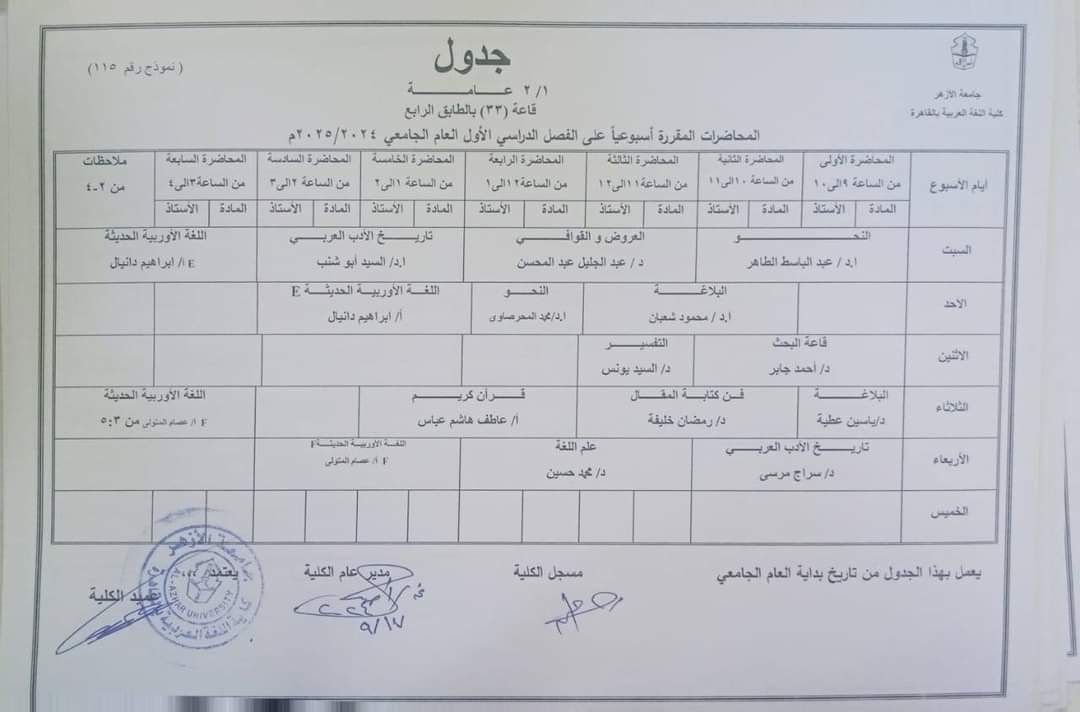 جامعة الأزهر
كلية اللغة العربية بالقاهرة
جدول
(نموذج رقم ١١٥)
٢/١ عـــامـــة
قاعة (٣٣) بالطابق الرابع
المحاضرات المقررة أسبوعياً على الفصل الدراسي الأول العام الجامعي ٢٠٢٥/٢٠٢٤م
أيام الأسبوع
المحاضرة الأولى
من الساعة ٩الى١٠
المحاضرة الثانية
من الساعة ١٠الى١١
المحاضرة الثالثة
من الساعة١١الى١٢
المحاضرة الرابعة
من الساعة١٢الى١
المحاضرة الخامسة
من الساعة ١الى٢
المحاضرة السادسة
من الساعة ٢الى٣
المحاضرة السابعة
من الساعة٣الى٤
ملاحظات
من ٢-٤
المادة الأستاذ المادة الأستاذ المادة الأستاذ المادة الأستاذ المادة الأستاذ المادة الأستاذ المادة الأستاذ
السبت
النحـــــو
ا.د/ عبد الباسط الطاهر
العروض و القوافـــــي
د / عبد الجليل عبد المحسن
تاريـــخ الأدب العربـــي
ا.د/ السيد أبو شنب
اللغة الأوربية الحديثة
E أ/ ابراهيم دانيال
الاحد
البلاغـــــة
ا.د / محمود شعبان
النحـــو
ا.د/محمد المحرصاوى
اللغـــة الأوربيـــة الحديثـــة E
أ/ ابراهيم دانيال
الاثنين
قاعة البحث
د/ أحمد جابر
التفسيـــر
د/ السيد يونس
الثلاثاء
البلاغـــــة
د/ياسين عطية
فـــن كتابـــة المقـــال
د/ رمضان خليفة
قـــرآن كريـــم
أ/ عاطف هاشم عباس
اللغة الأوربية الحديثة
F أ/ عصام المتولى من ٥:٣
الأربعاء
تاريـــخ الأدب العربـــي
د/ سراج مرسى
علم اللغة
د/ محمد حسين
اللغـــة الأوربيـــة الحديثـــةF
F أ/ عصام المتولى
الخميس
يعمل بهذا الجدول من تاريخ بداية العام الجامعي
مسجل الكلية
مدير عام الكلية
يعتمد ،،،
عميد الكلية
٩/١٧
جامعة الأزهر
AL-AZHAR UNIVERSITY
كلية اللغة العربية بالقاهرة